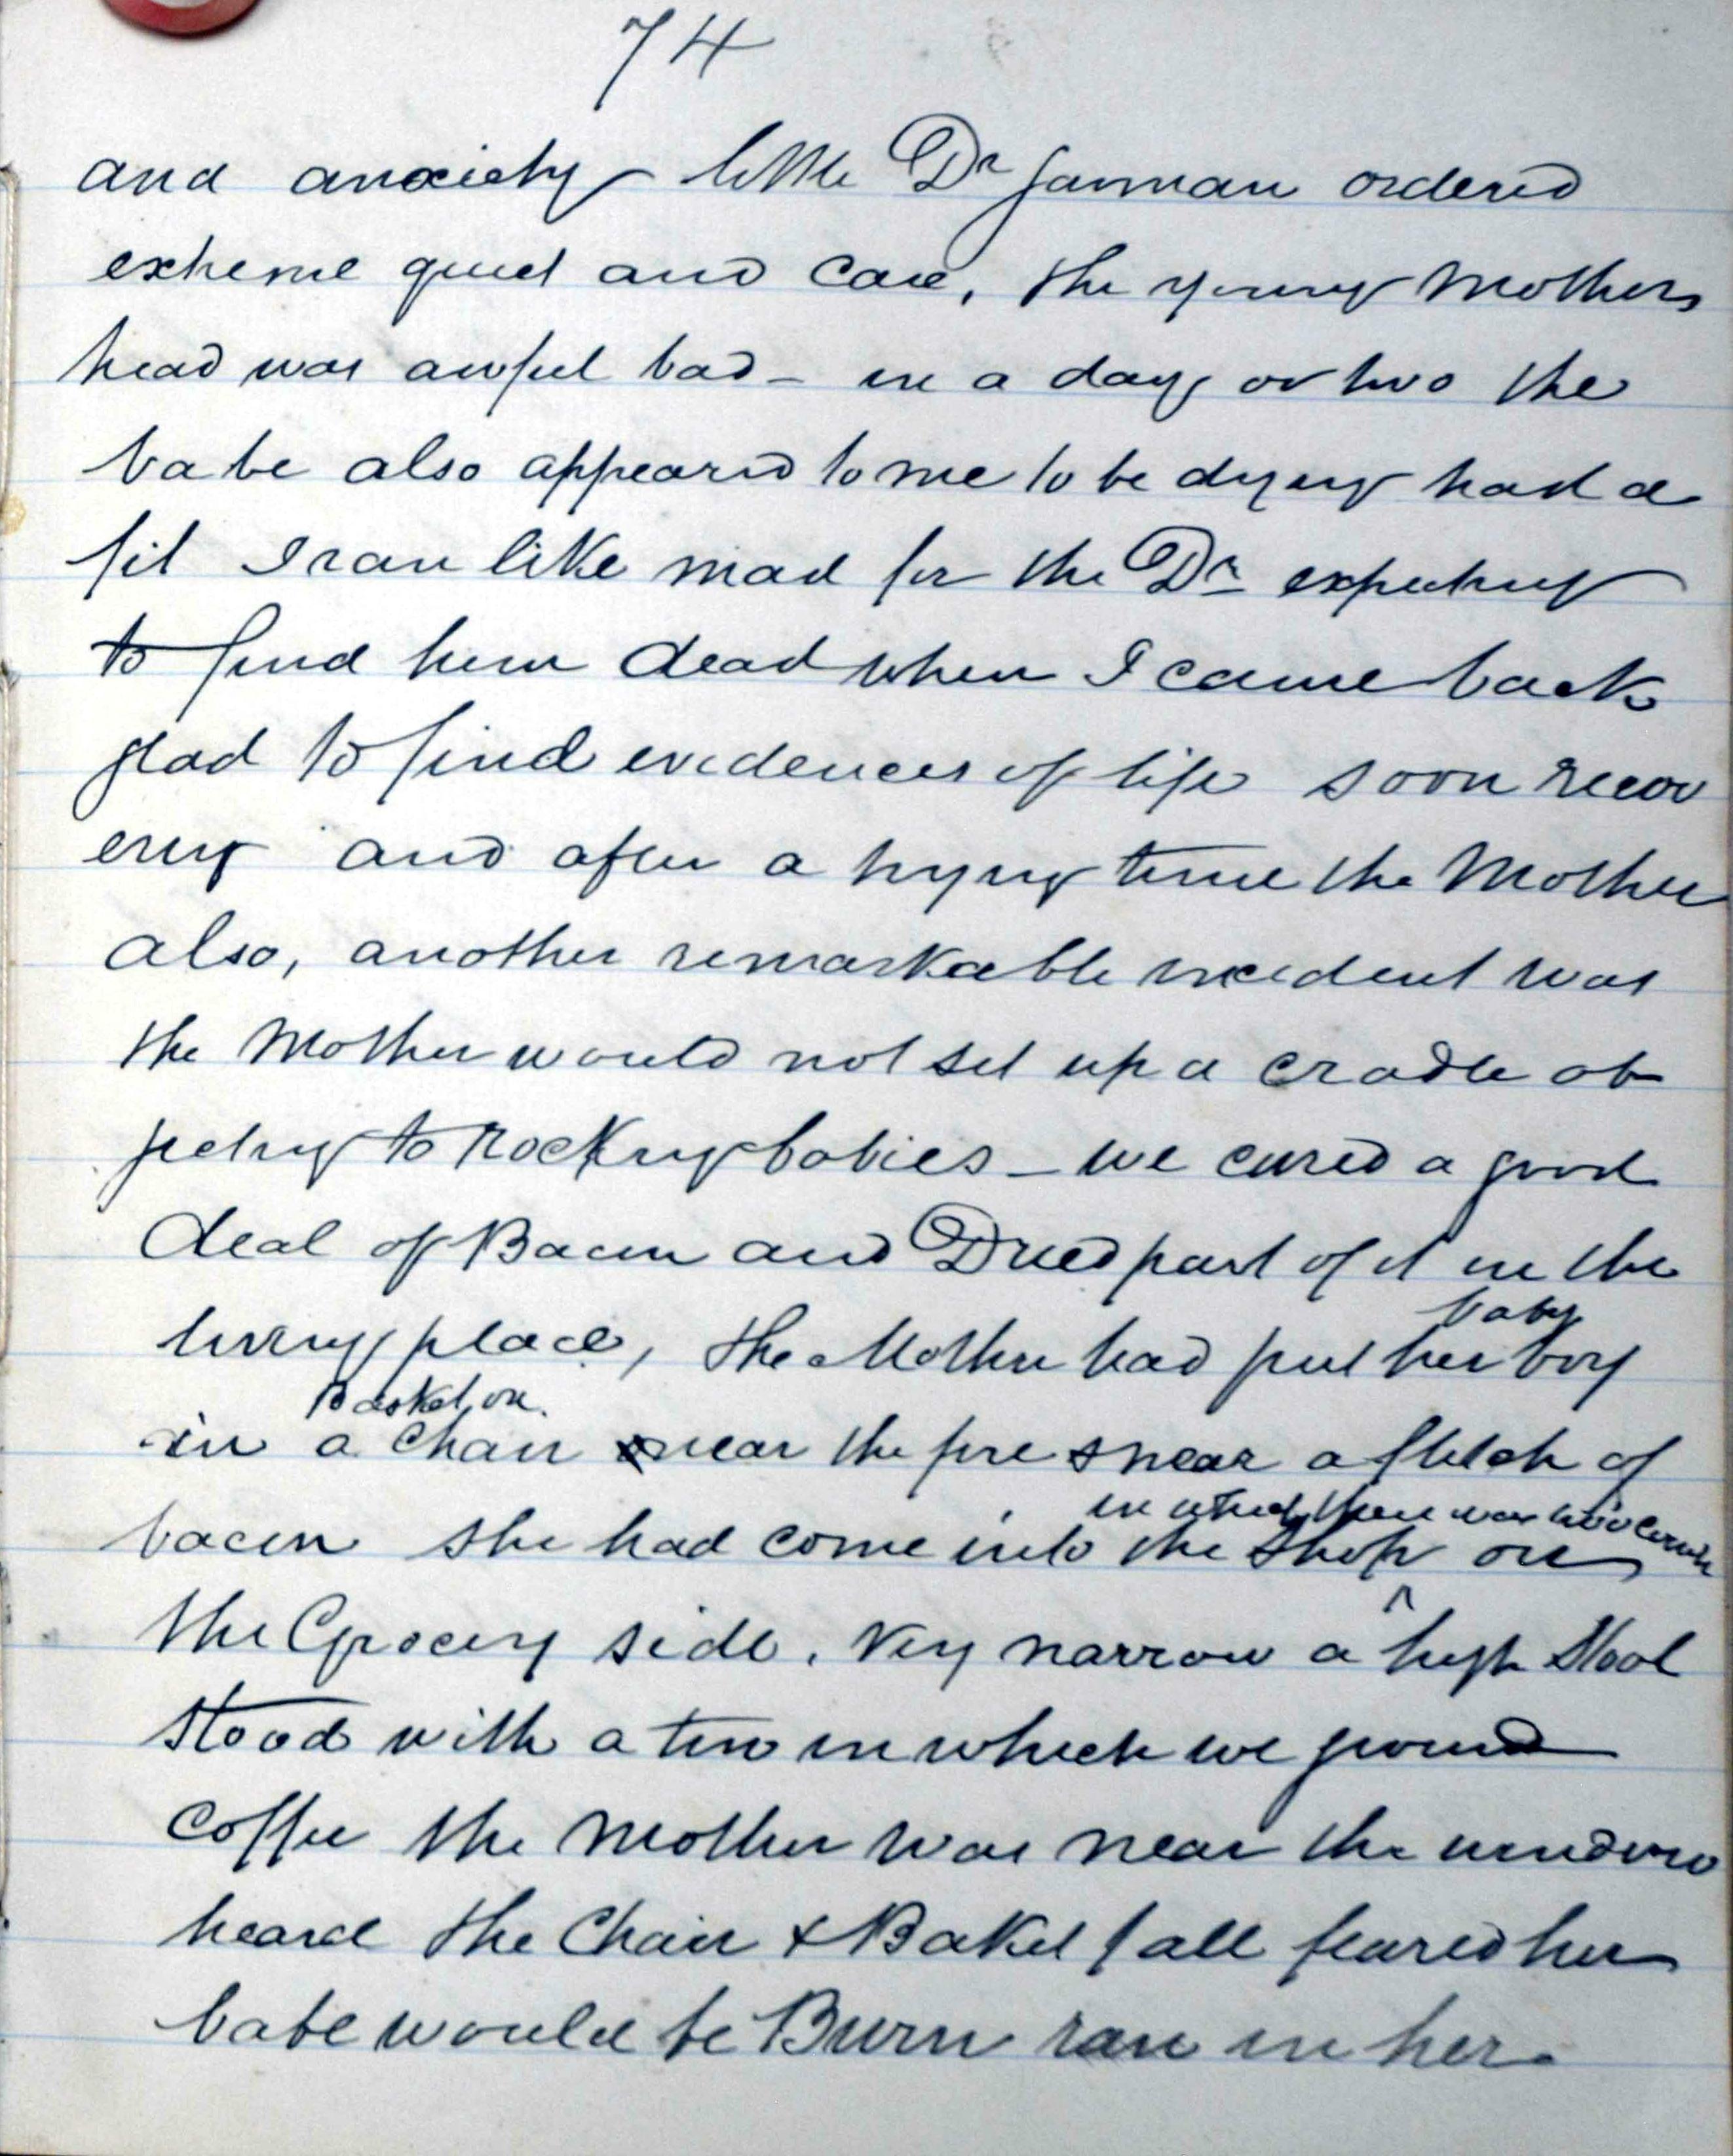 74
and anxiety little Dr Jarman ordered
extreme quiet and care, the young Mothers
head was awful bad - in a day or two the
babe also appeared to me to be dying had a
fit I ran like mad for the Dr expecting
to find him dead when I came back
glad to find evidences of life soon recov
ering and after a trying time the Mother
also, another remarkable incident was
the Mother would not set up a cradle ob
jecting to rocking babies - we cured a good
deal of Bacon and Dried part of it in the
baby
living place, the Mother had put her boy
Basket on
in a Chair near the fire near a flitch of
bacon she had come into the Shop on
in which there was two
the Grocery side. Very narrow a high Stool
stood with a tin in which we ground
Coffee the Mother was near the window
heard the Chair & Basket fall feared her
babe would be Burn ran in her